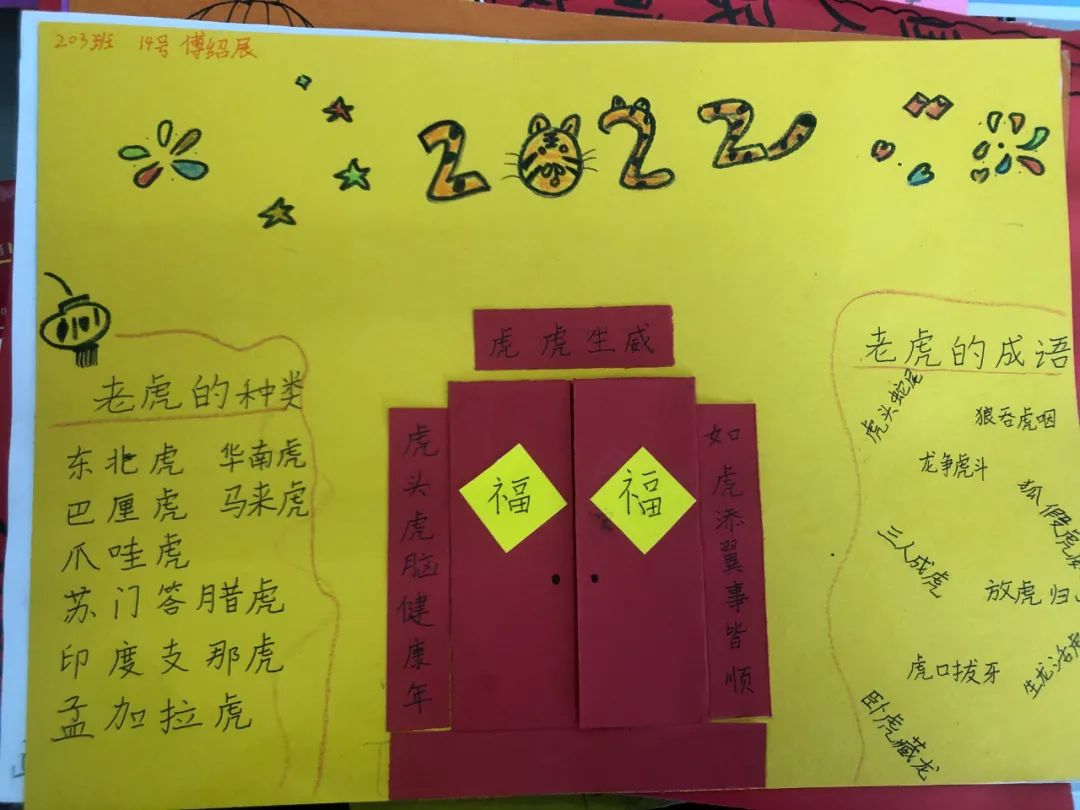 203班 14号 傅绍展
2022
老虎的种类
东北虎 华南虎
巴厘虎 马来虎
爪哇虎
苏门答腊虎
印度支那虎
孟加拉虎
虎虎生威
虎头虎脑健康年
福
福
如虎添翼事皆顺
老虎的成语
虎头蛇尾
狼吞虎咽
龙争虎斗
狐假虎
三人成虎
放虎归
虎口拔牙
生龙活虎
卧虎藏龙